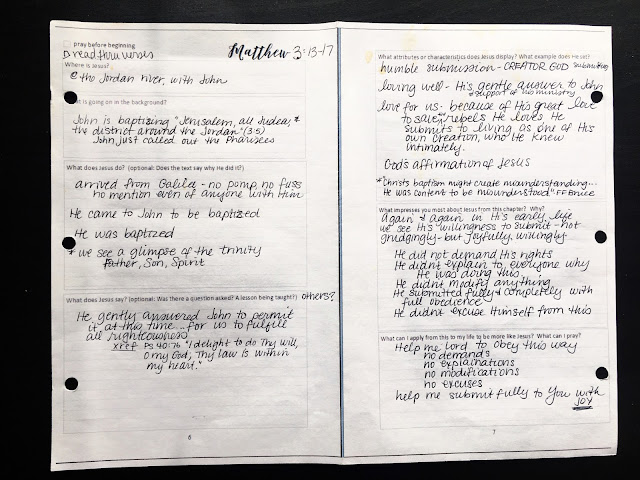 pray before beginning
read thru verses
Matthew 3:13-17
Where is Jesus?
@ the Jordan river, with John
is going on in the background?
John is baptizing "Jerusalem, all Judea, &
the district around the Jordan" (3:5)
John just called out the Pharisees
What does Jesus do? (optional: Does the text say why He did it?)
arrived from Galilee - no pomp, no fuss
no mention even of anyone with Him
He came to John to be baptized
He was baptized
* we see a glimpse of the trinity
Father, Son, Spirit
What does Jesus say? (optional: Was there a question asked? A lesson being taught?) others?
He gently answered John to permit
it at this time... for us to fulfill
all righteousness
xref Ps 40:7-8 "I delight to do Thy will,
O my God; Thy law is within
my heart."
6
What attributes or characteristics does Jesus display? What example does He set?
humble submission - CREATOR GOD submitting
loving well - His gentle answer to John
* support of his ministry
love for us - because of His great love
to save rebels He loves He
submits to living as one of His
own creation, who He knew
intimately.
God's affirmation of Jesus
* "Christ's baptism might create misunderstanding...
He was content to be misunderstood" FF Bruce
What impresses you most about Jesus from this chapter? Why?
Again & again in His early life
we see His willingness to submit - not
grudgingly - but joyfully, willingly
He did not demand His rights
He didn't explain to everyone why
He was doing this
He didn't modify anything
He submitted fully & completely with
full obedience
He didn't excuse Himself from this
What can I apply from this to my life to be more like Jesus? What can I pray?
Help me Lord to obey this way
no demands
no explainations
no modifications
no excuses
help me submit fully to You with
JOY
7